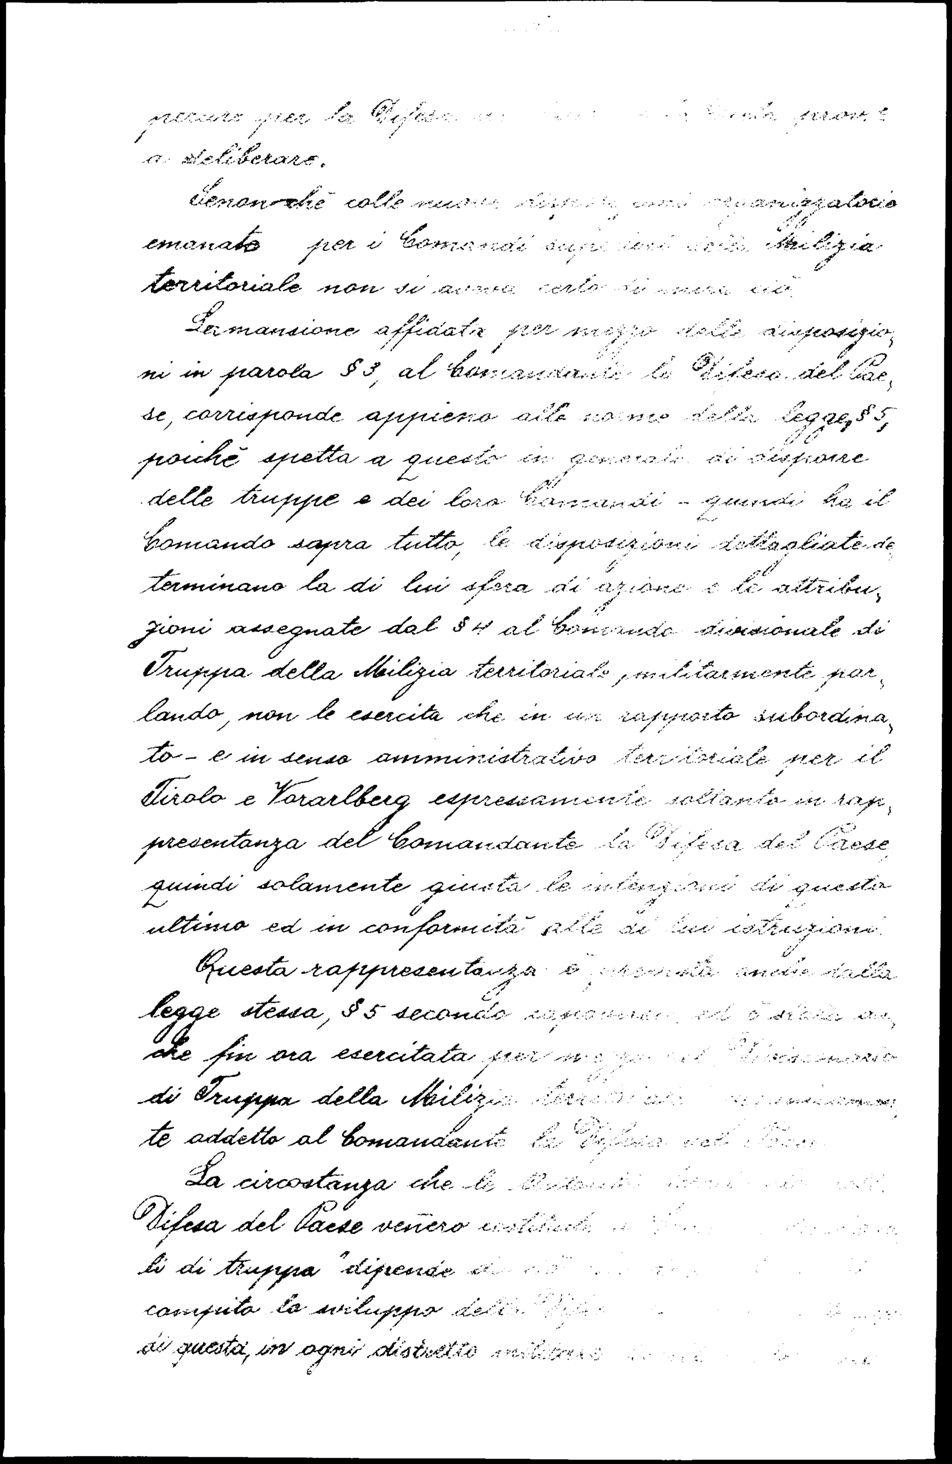 per la Difesa
a deliberare.
Senonchè colle nuove organizzatorie
emanate per i Comandi superiori della Milizia
territoriale non si aveva certo di mira ciò.
La mansione affidata per mezzo delle disposizio„
ni in parola § 3, al Comandante la Difesa del Pae„
se, corrisponde appieno alle norme della legge, § 5,
poichè spetta a questo in generale di disporre
delle truppe e dei loro Comandi – quindi ha il
Comando sopra tutto, le disposizioni dettagliate de
terminano la di lui sfera di azione e le attribu„
zioni assegnate dal § 4 al Comando divisionale di
Truppa della Milizia territoriale, militarmente par„
lando, non le esercita che in un rapporto subordina„
to – e in senso amministrativo territoriale per il
Tirolo e Vorarlberg espressamente soltanto in rap„
presentanza del Comandante la Difesa del Paese,
quindi solamente giusta le intenzioni di questo
ultimo ed in conformità alle di lui istruzioni.
Questa rappresentanza è prevista anche dalla
legge stessa, § 5 secondo capoverso, ed è stata an„
che fin ora esercitata per mezzo del Divisionario
di Truppa della Milizia territoriale
te addetto al Comandante la Difesa del Paese.
La circostanza che le
Difesa del Paese vennero costituite
li di truppa" dipende
compito lo sviluppo della
di questa, in ogni distretto militare